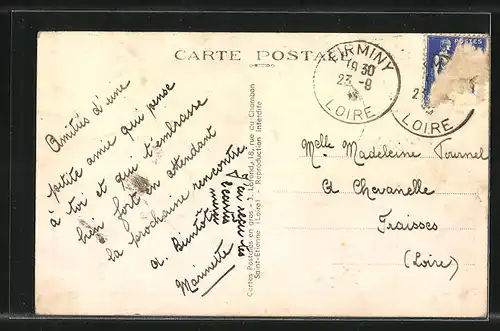 CARTE POSTALE
Amitiés d'une
petite amie qui pense
à toi et qui t'embrasse
bien fort en attendant
la prochaine rencontre
a. Bientôt
Marinette
Cartes Postales en gros - J. 18, rue du Chambon
Saint-Etienne (Loire) - Reproduction interdite
FIRMINY
19 30
23 -8
LOIRE
POSTES
LOIRE
Melle Madeleine Fournel
a Chavanelle
Fraisses
(Loire)